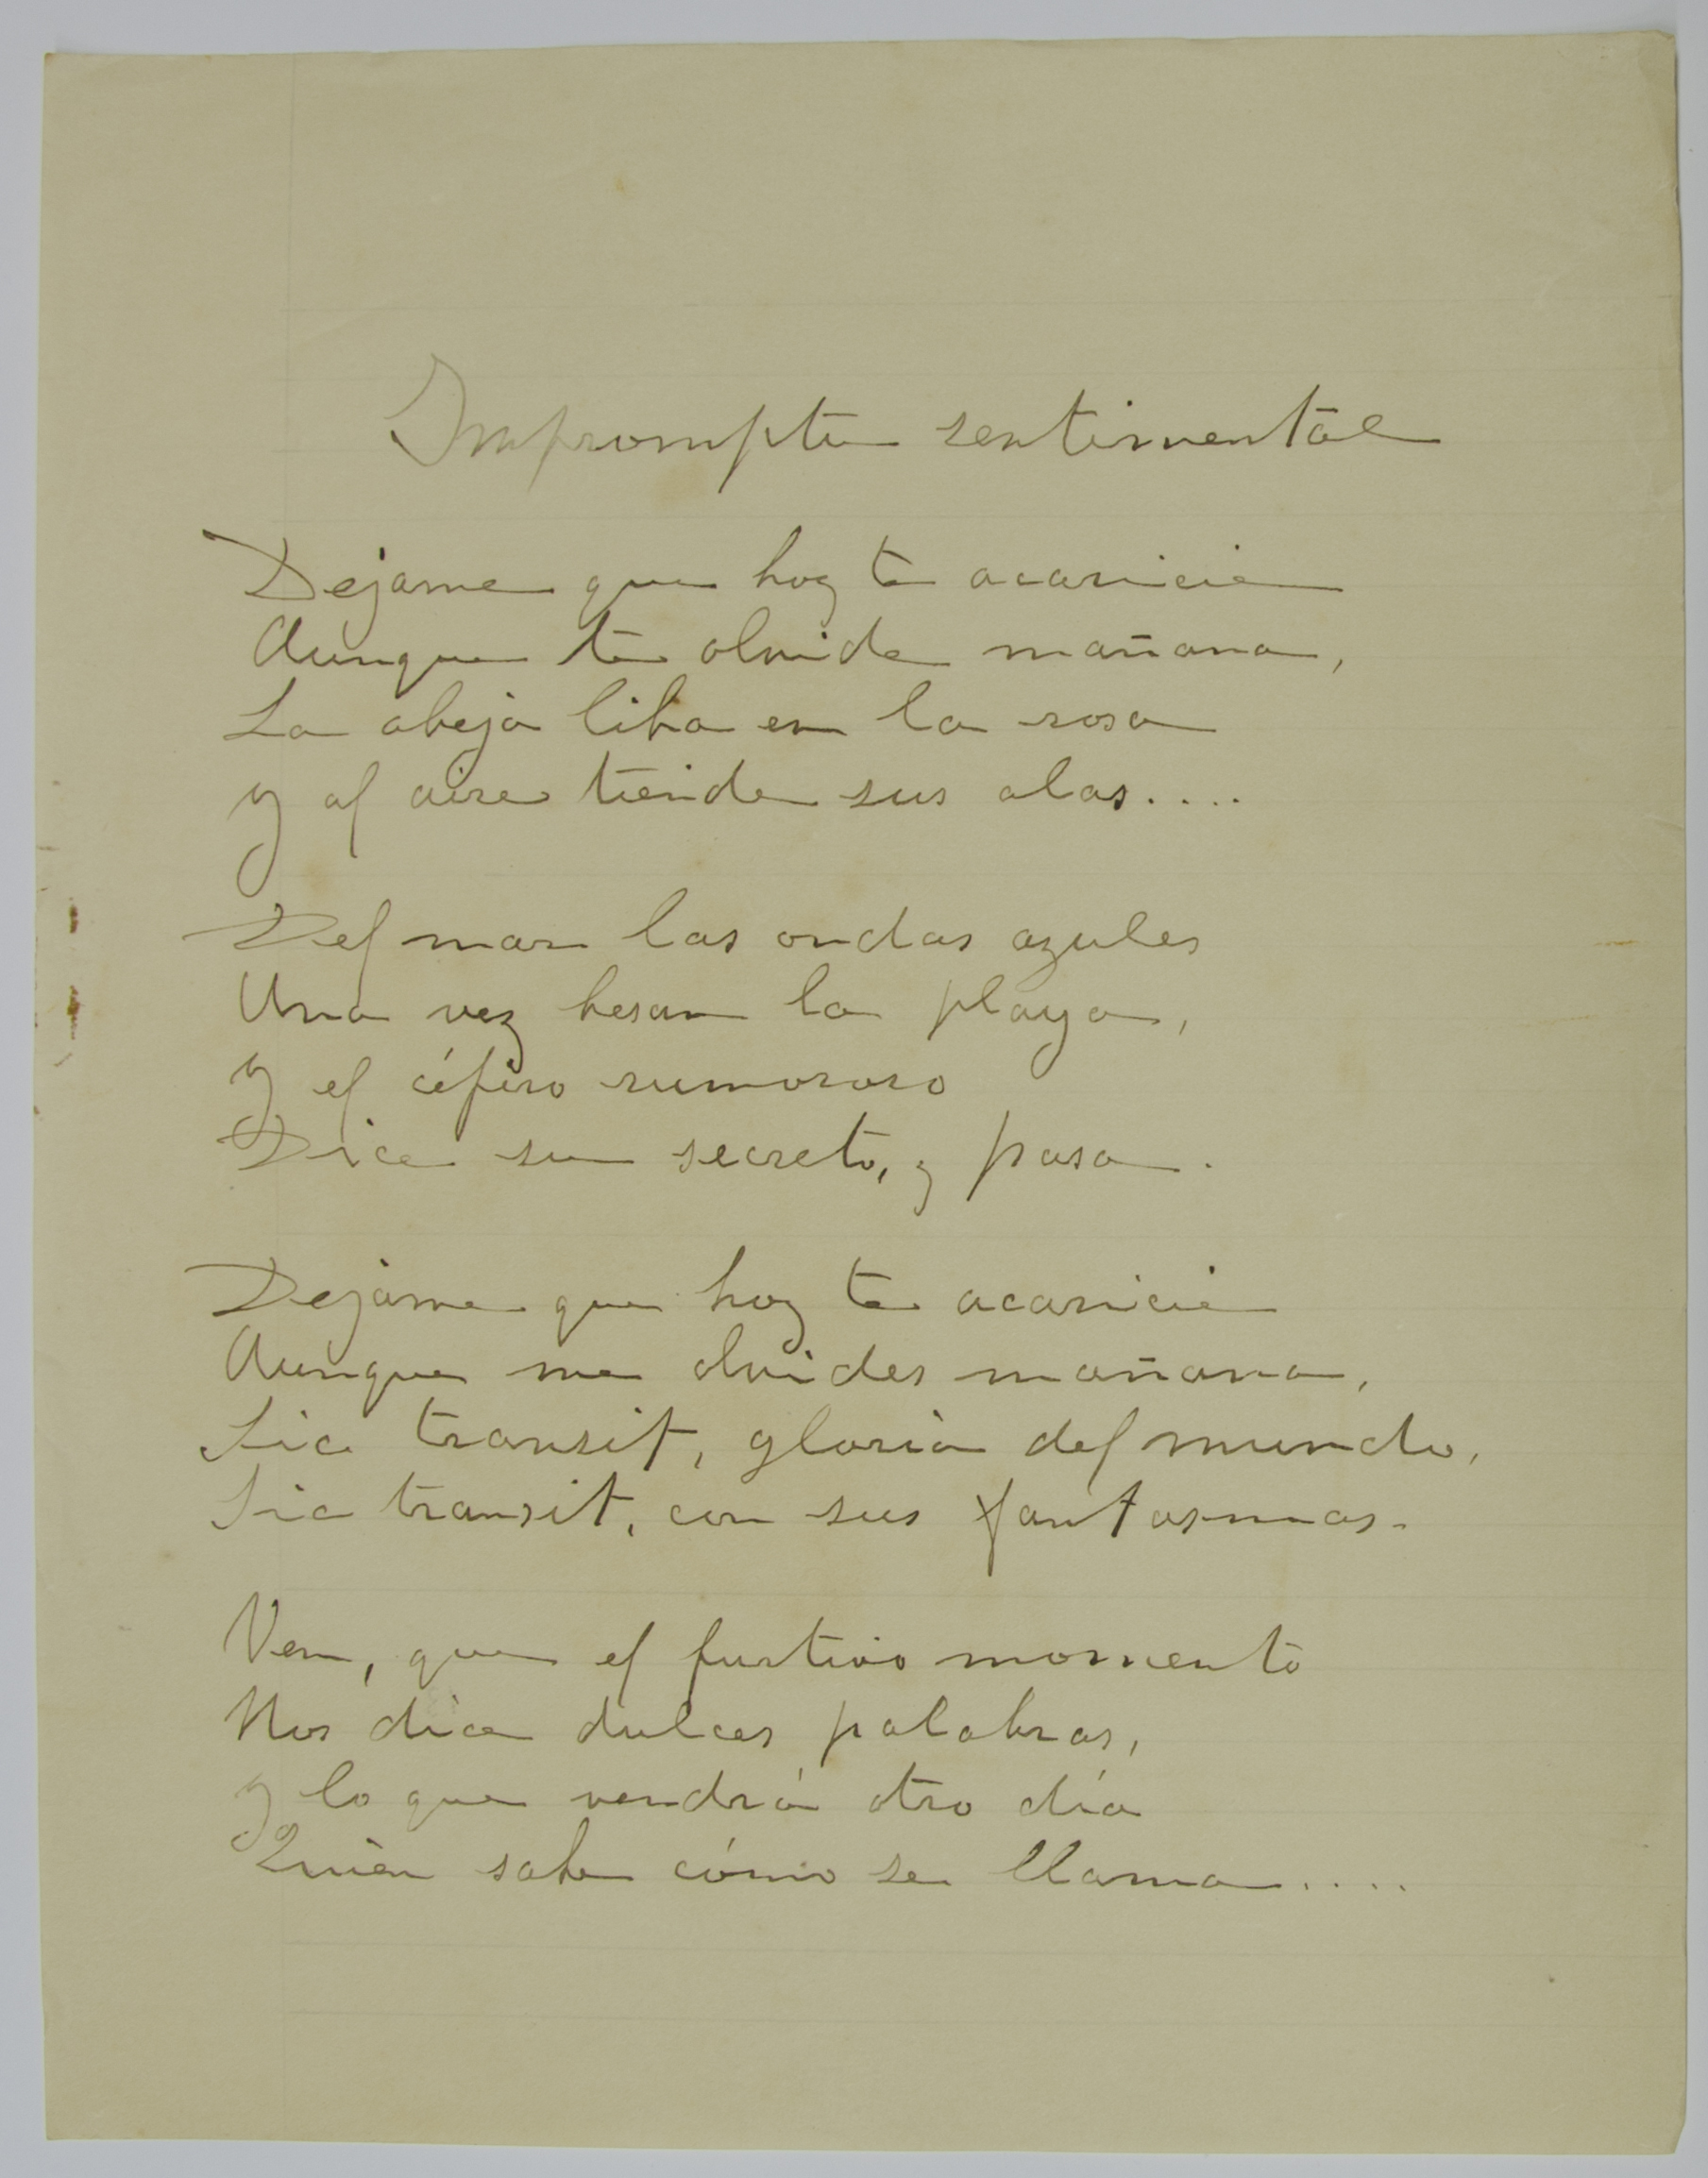 Impromptu sentimental
Dejame que hoy te acaricie
Aunque te olvide mañana,
La abeja liba en la rosa
y al aire tiende sus alas....
Del mar las ondas azules
Una vez besan la playa,
y el céfiro rumoroso
Dice su secreto, y pasa.
Dejame que hoy te acaricie
Aunque me olvides mañana,
Sic transit, gloria del mundo,
Sic transit, con sus fantasmas.
Ven, que el furtivo momento
Nos dice dulces palabras,
y lo que vendrá otro día
Quién sabe cómo se llama.....